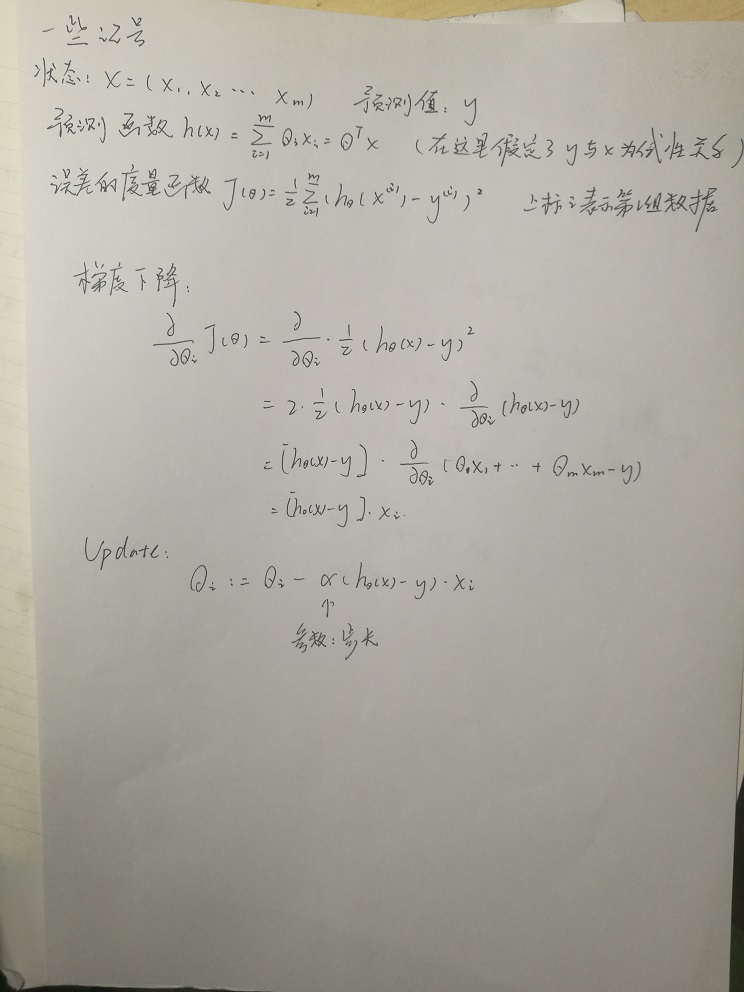 一些记号
状态: X = (x₁, x₂ ⋯ xₘ) 预测值: y
预测函数 h(x) = ∑ᵢ₌₁ᵐ θᵢxᵢ = θᵀx (在这里假定了 y 与 x 为线性关系)
误差的度量函数 J(θ) = ½ ∑ᵢ₌₁ᵐ (h_θ(x⁽ⁱ⁾) - y⁽ⁱ⁾)² 上标 i 表示第 i 组数据
梯度下降:
∂/∂θᵢ J(θ) = ∂/∂θᵢ · ½ (h_θ(x) - y)²
= 2 · ½ (h_θ(x) - y) · ∂/∂θᵢ (h_θ(x) - y)
= [h_θ(x) - y] · ∂/∂θᵢ (θ₁x₁ + ⋯ + θₘxₘ - y)
= [h_θ(x) - y] · xᵢ.
Update:
θᵢ := θᵢ - α(h_θ(x) - y) · xᵢ
↑
参数: 步长